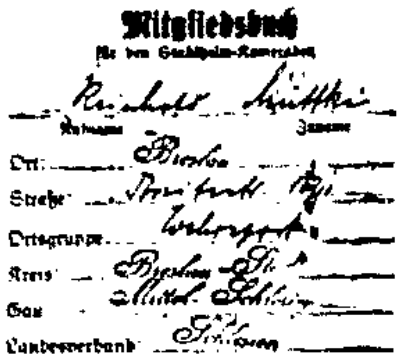 Mitgliedsbuch
für den Stahlhelm-Kameraden
Reinhold
Rufname Zuname
Ort: Breslau
Straße:
Ortsgruppe: Wehrsport
Kreis: Breslau-
Gau: Mittel-Schlesien
Landesverband: Schlesien